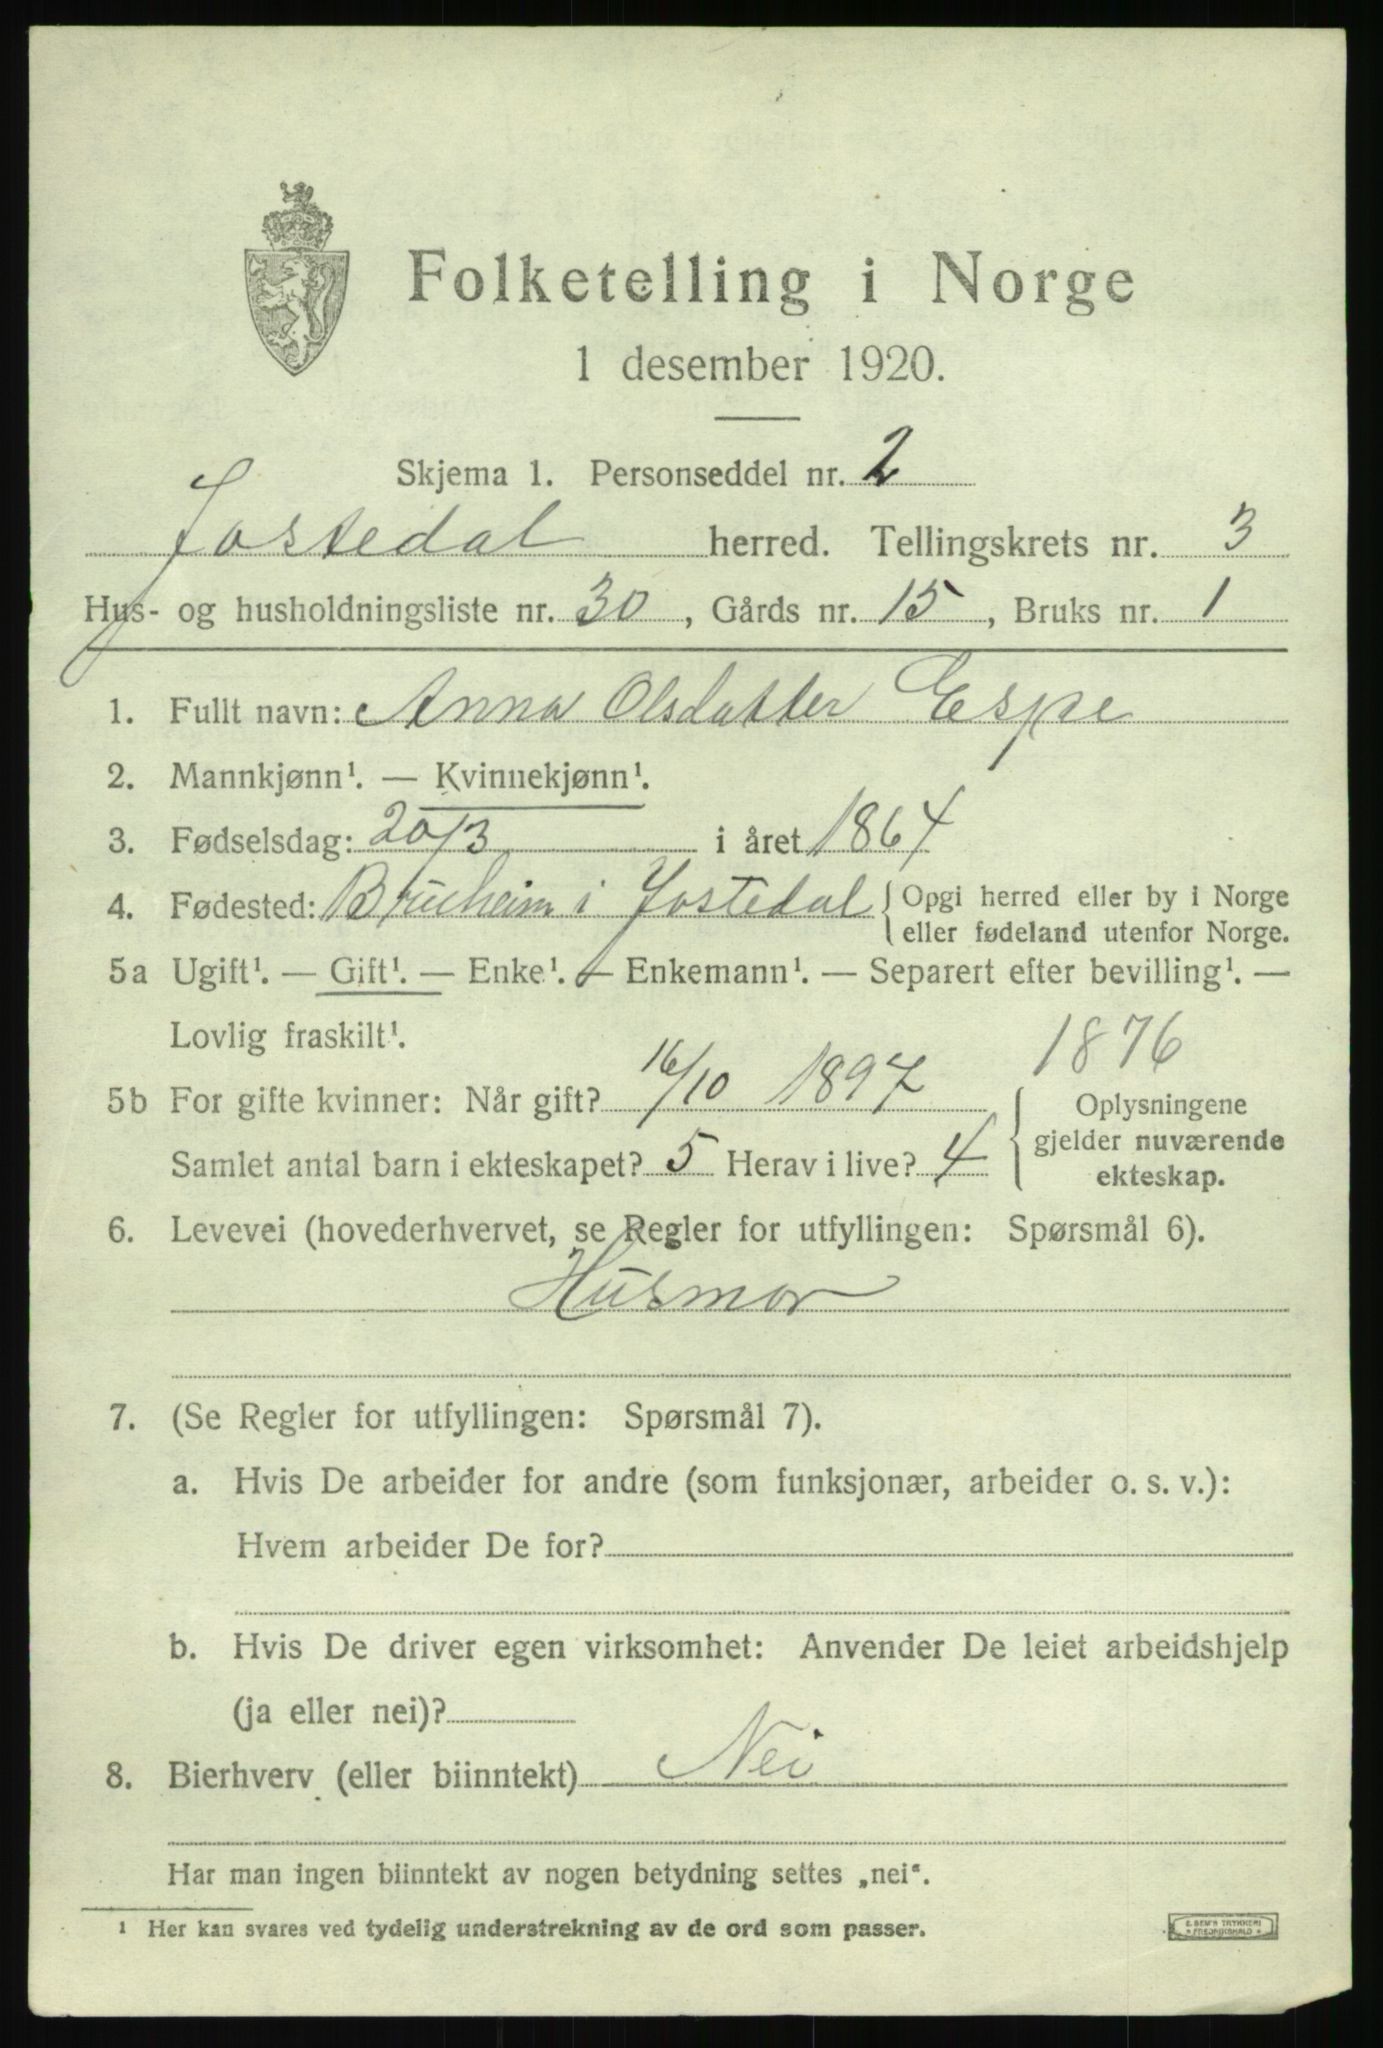 Folketelling i Norge
1 desember 1920.
Skjema 1. Personseddel nr. 2
Jostedal herred. Tellingskrets nr. 3
Hus- og husholdningsliste nr. 30, Gårds nr. 15, Bruks nr. 1
1. Fullt navn: Anna Olsdatter Espe
2. Mannkjønn¹. — Kvinnekjønn¹.
3. Fødselsdag: 20/3 i året 1864
4. Fødested: Bruheim i Jostedal { Opgi herred eller by i Norge
eller fødeland utenfor Norge.
5a Ugift¹. — Gift¹. — Enke¹. — Enkemann¹. — Separert efter bevilling¹. —
Lovlig fraskilt¹.
1876
5b For gifte kvinner: Når gift? 16/10 1897
Samlet antal barn i ekteskapet? 5 Herav i live? 4
{ Oplysningene
gjelder nuværende
ekteskap.
6. Levevei (hovederhvervet, se Regler for utfyllingen: Spørsmål 6).
Husmor
7. (Se Regler for utfyllingen: Spørsmål 7).
a. Hvis De arbeider for andre (som funksjonær, arbeider o. s. v.):
Hvem arbeider De for?
b. Hvis De driver egen virksomhet: Anvender De leiet arbeidshjelp
(ja eller nei)?
8. Bierhverv (eller biinntekt) Nei
Har man ingen biinntekt av nogen betydning settes „nei“.
¹ Her kan svares ved tydelig understrekning av de ord som passer.
E. SEM'S TRYKKERI
* FREDRIKSHALD *